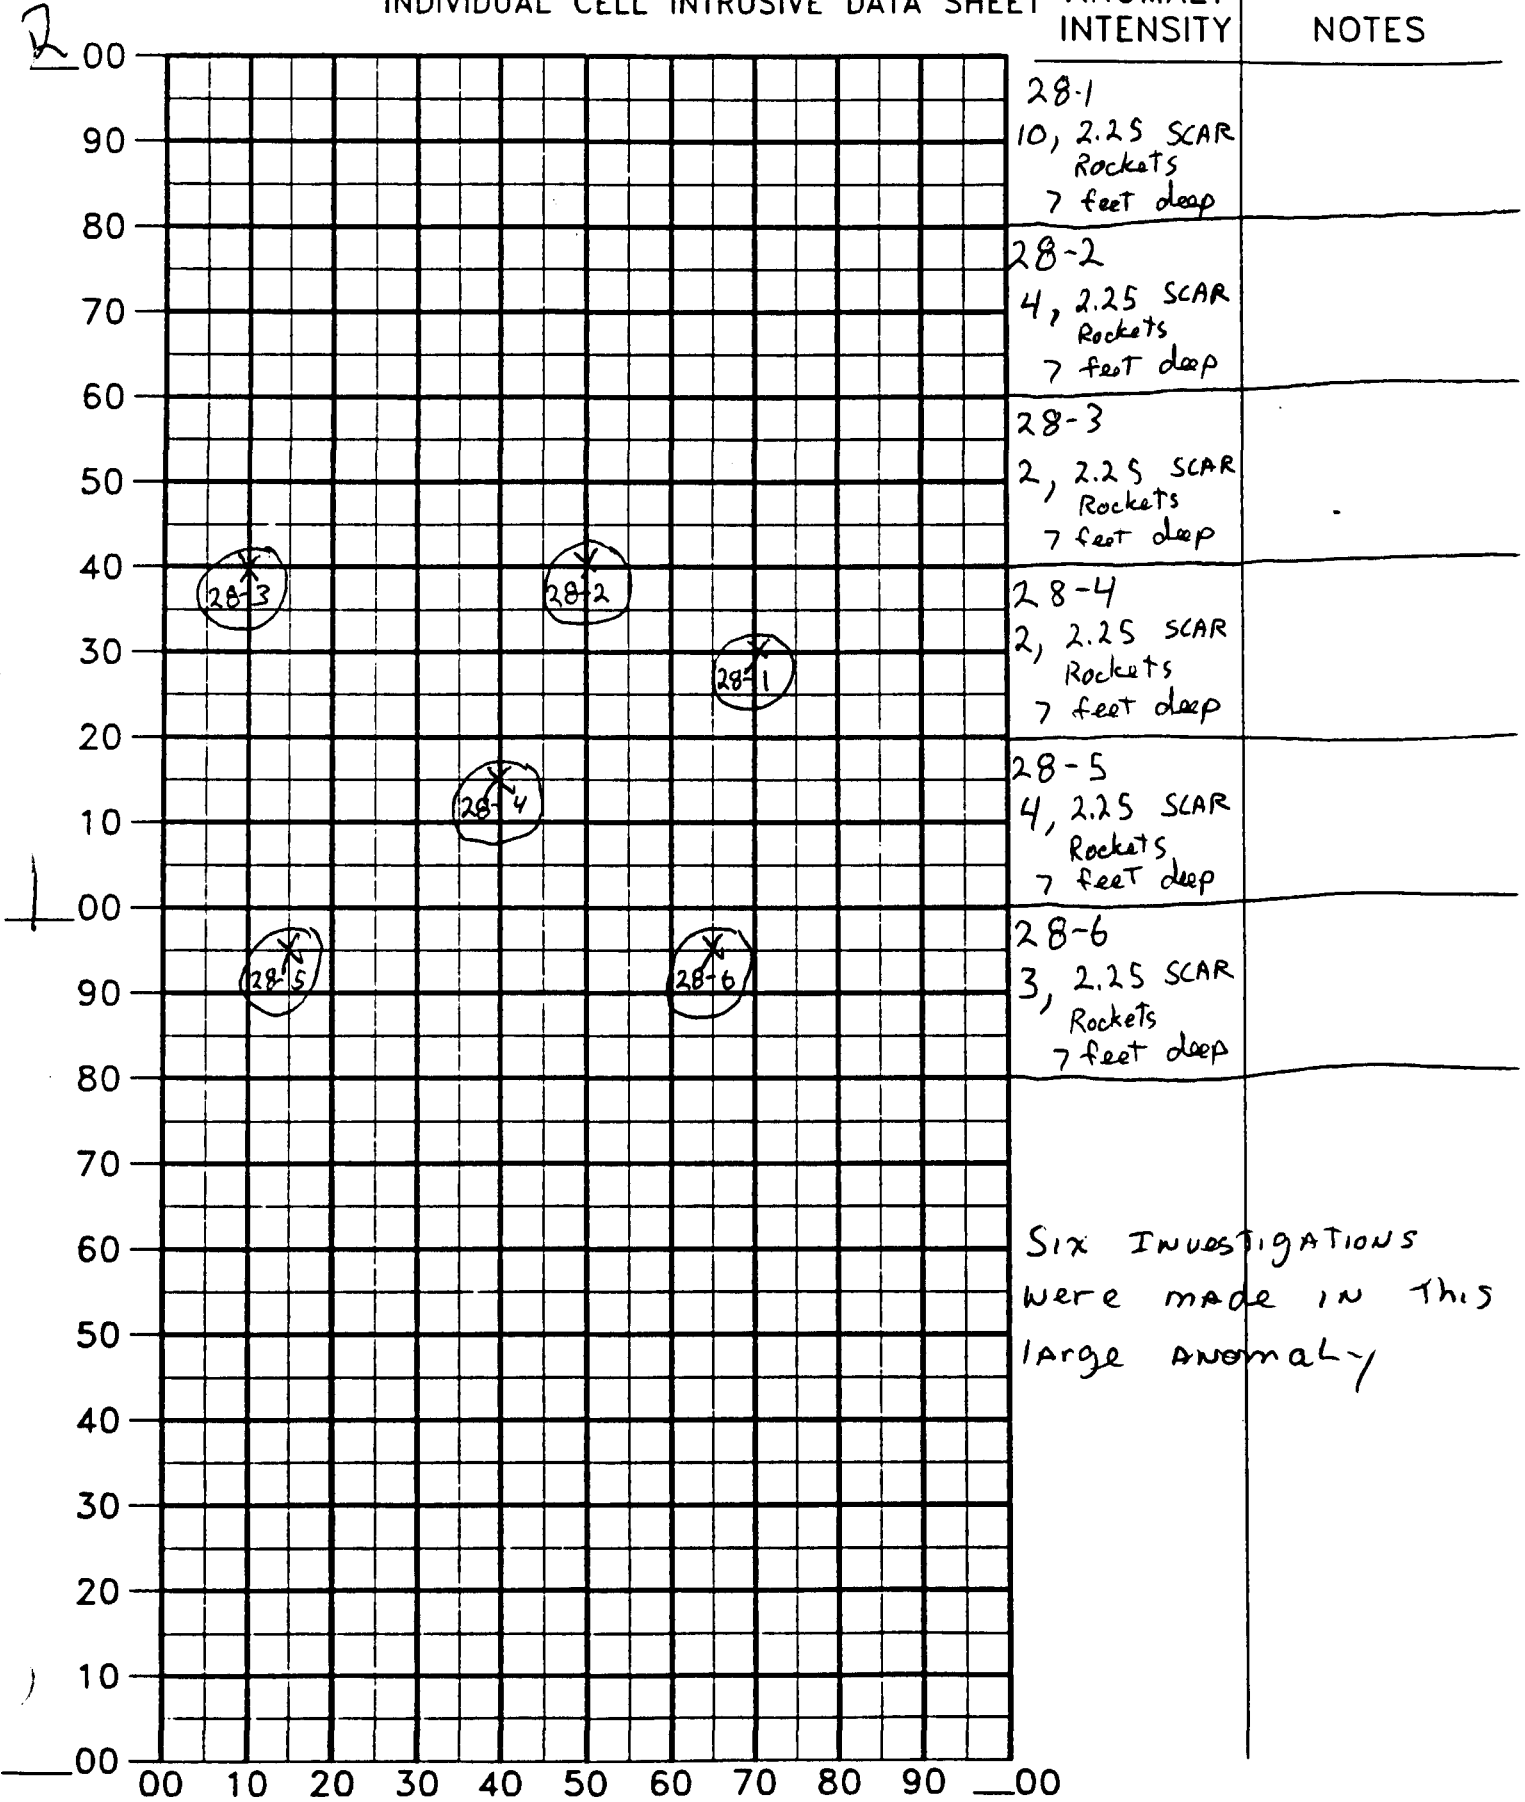 INDIVIDUAL CELL INTRUSIVE DATA SHEET ANOMALY
INTENSITY NOTES
2 00
90
80
70
60
50
40
30
20
10
1 00
90
80
70
60
50
40
30
20
10
00
00 10 20 30 40 50 60 70 80 90 __00
28-3
28-2
28-1
28-4
28-5
28-6
28-1
10, 2.25 SCAR
Rockets
7 feet deep
28-2
4, 2.25 SCAR
Rockets
7 feet deep
28-3
2, 2.25 SCAR
Rockets
7 feet deep
28-4
2, 2.25 SCAR
Rockets
7 feet deep
28-5
4, 2.25 SCAR
Rockets
7 feet deep
28-6
3, 2.25 SCAR
Rockets
7 feet deep
Six Investigations
were made in this
large Anomaly